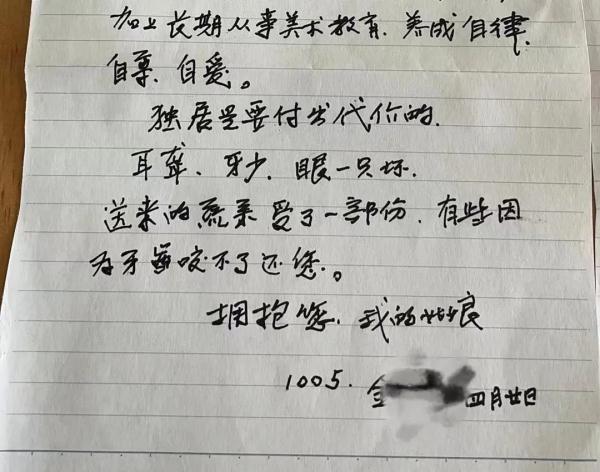 加上长期从事美术教育、养成自律、
自尊、自爱。
独居是要付出代价的。
耳聋、牙少、眼一只坏。
送来的蔬菜受了一部份，有些因
为牙齿咬不了还您。
拥抱您，我的姑娘
1005. 金 四月廿日